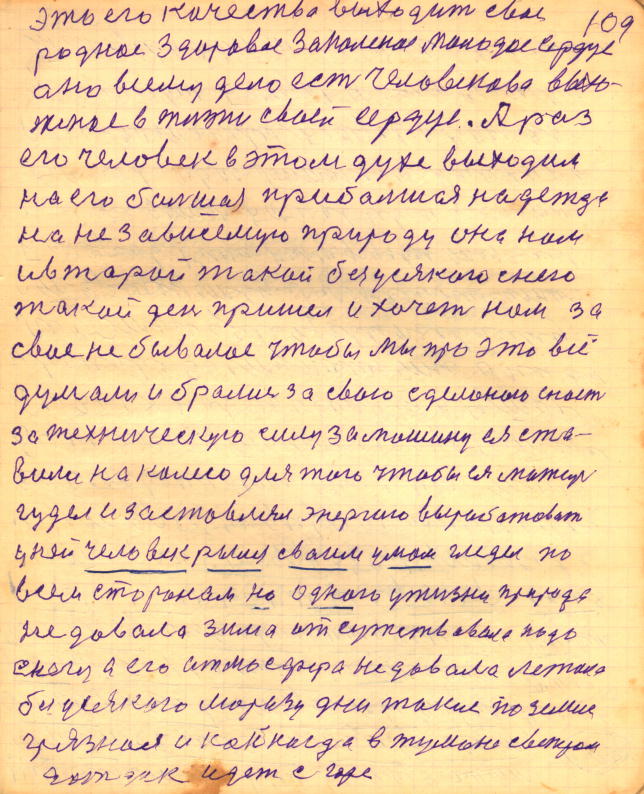 109
это его качества выходит свое
родное здоровое заколеное молодое сердце
оно всему дело ест человекова выло-
женое в жизни своей сердце. А раз
его человек в этом духе выходил
на его болшая прибалшая надежда
на не зависемую природу она нам
и втарой такой безусякого снего
такой ден пришел и хочет нам за
свое не бывалое чтобы мы про это всё
думали и бралис за свою сделоною снаст
за техническую силу за машину ея ста-
вили на колесо для того чтобы ея матор
гудел и заставлял энергию вырабатоват
у ней человек рылся своим умом глядел по
всем сторонам но одного у жизни природа
не довала зима отсутствовала подо
снегу а его атмосфера не довала летала
безусякого морозу дни такие по земле
грязная и как когда в тумане с ветром
идет с горе